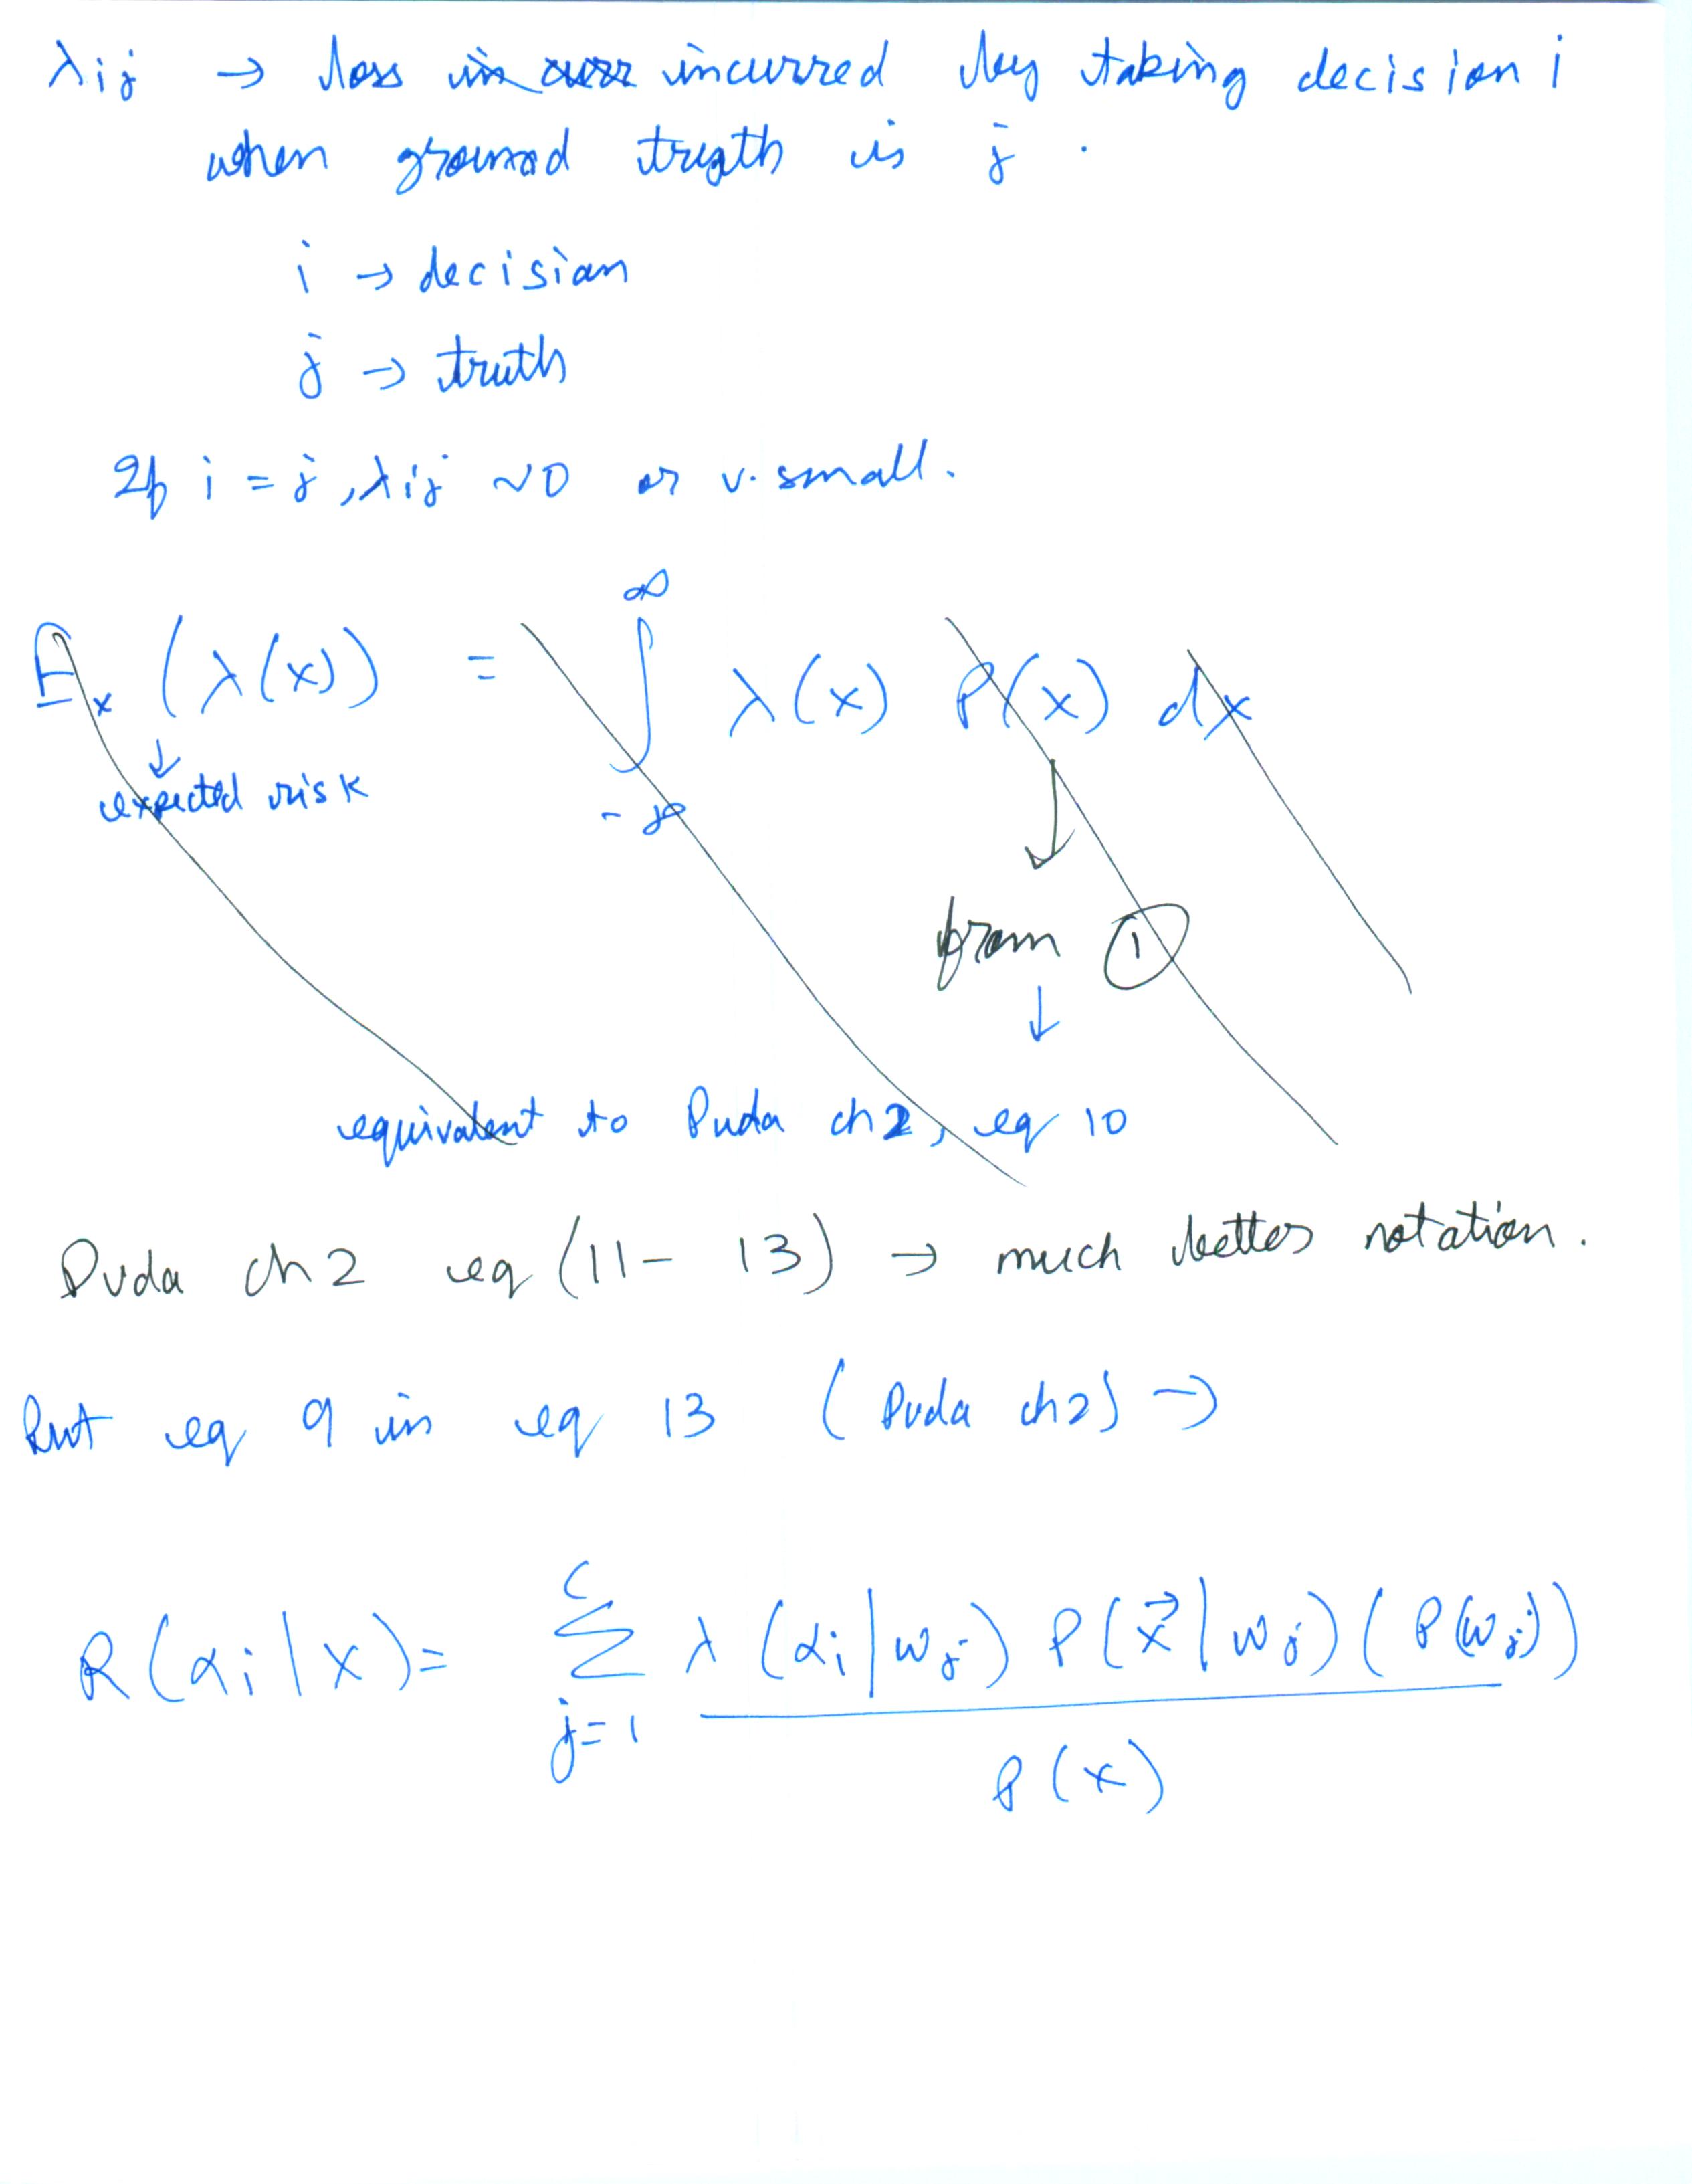 λij → loss in curr incurred by taking decision i
when ground truth is j .
i → decision
j → truth
If i = j , λij ~0 or v. small.
Ex (λ(x)) = ∫_{-∞}^{∞} λ(x) P(x) dx
↓
expected risk
↓
from ①
↓
equivalent to Duda ch2, eq 10
Duda ch2 eq (11 - 13) → much better notation.
Put eq 9 in eq 13 (Duda ch2) →
R(αi|x) = Σ_{j=1}^{C} λ(αi|wj) P(x⃗|wj) (P(wj)) / P(x)